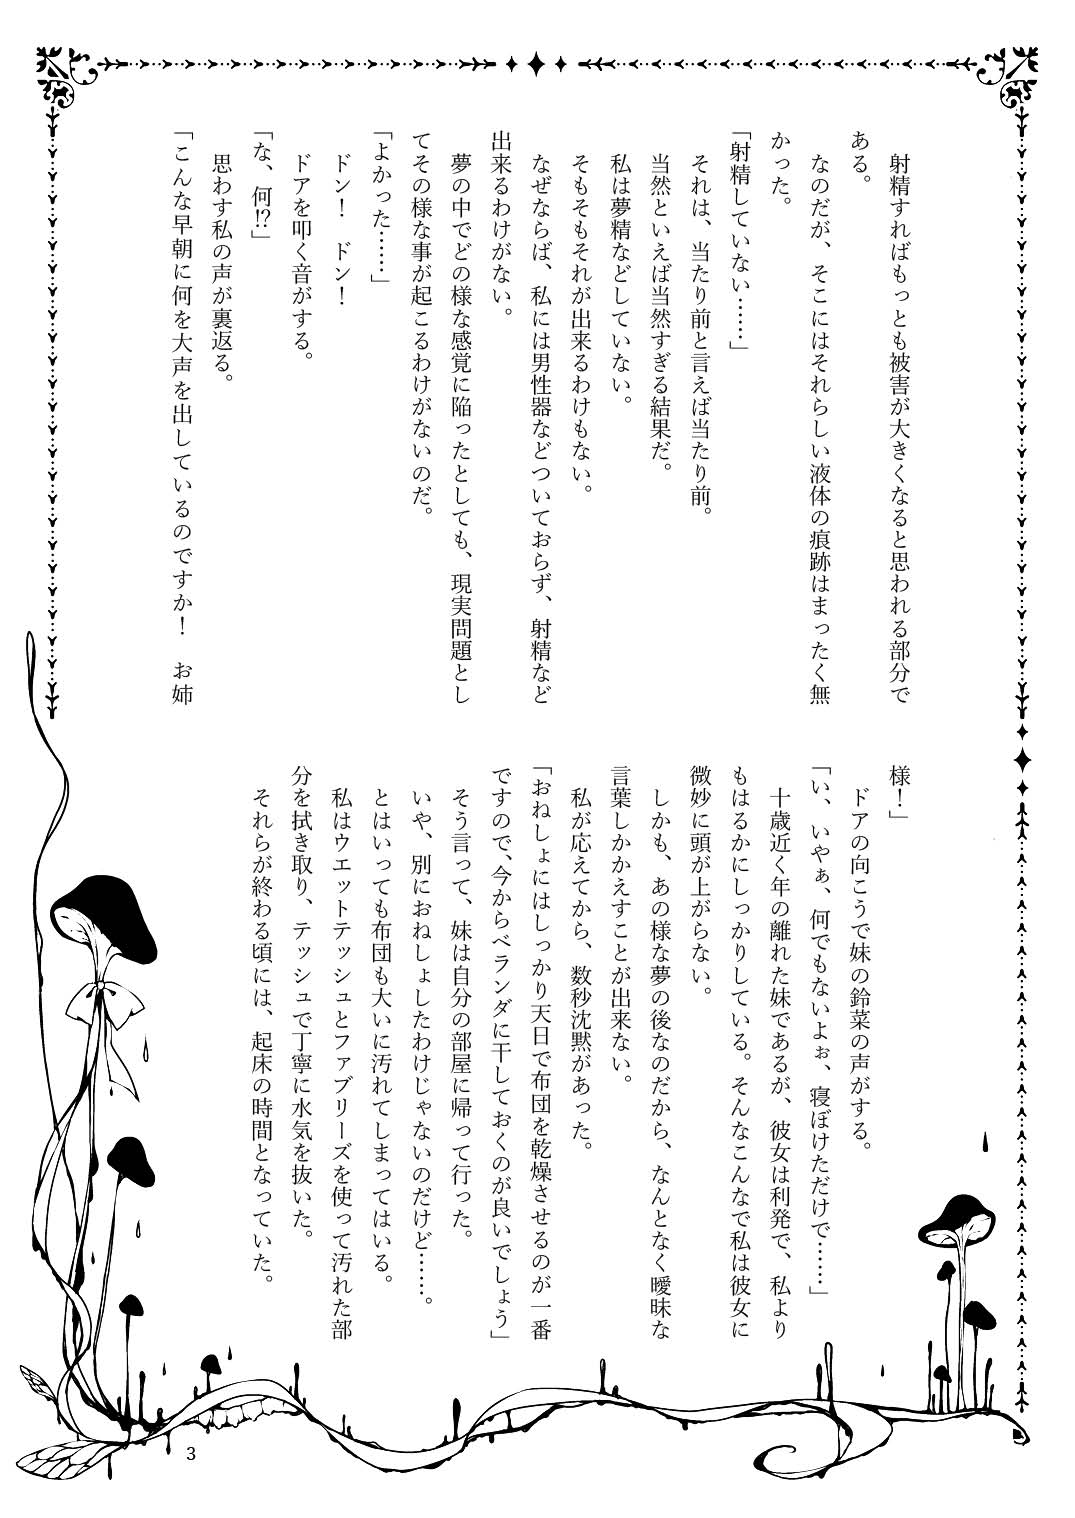 射精すればもっとも被害が大きくなると思われる部分で
ある。
　なのだが、そこにはそれらしい液体の痕跡はまったく無
かった。
「射精していない……」
　それは、当たり前と言えば当たり前。
　当然といえば当然すぎる結果だ。
　私は夢精などしていない。
　そもそもそれが出来るわけもない。
　なぜならば、私には男性器などついておらず、射精など
出来るわけがない。
　夢の中でどの様な感覚に陥ったとしても、現実問題とし
てその様な事が起こるわけがないのだ。
「よかった……」
　ドン！　ドン！
　ドアを叩く音がする。
「な、何!?」
　思わす私の声が裏返る。
「こんな早朝に何を大声を出しているのですか！　お姉
様！」
　ドアの向こうで妹の鈴菜の声がする。
「い、いやぁ、何でもないよぉ、寝ぼけただけで……」
　十歳近く年の離れた妹であるが、彼女は利発で、私より
もはるかにしっかりしている。そんなこんなで私は彼女に
微妙に頭が上がらない。
　しかも、あの様な夢の後なのだから、なんとなく曖昧な
言葉しかかえすことが出来ない。
　私が応えてから、数秒沈黙があった。
「おねしょにはしっかり天日で布団を乾燥させるのが一番
ですので、今からベランダに干しておくのが良いでしょう」
　そう言って、妹は自分の部屋に帰って行った。
　いや、別におねしょしたわけじゃないのだけど……。
　とはいっても布団も大いに汚れてしまってはいる。
　私はウエットテッシュとファブリーズを使って汚れた部
分を拭き取り、テッシュで丁寧に水気を抜いた。
　それらが終わる頃には、起床の時間となっていた。
3